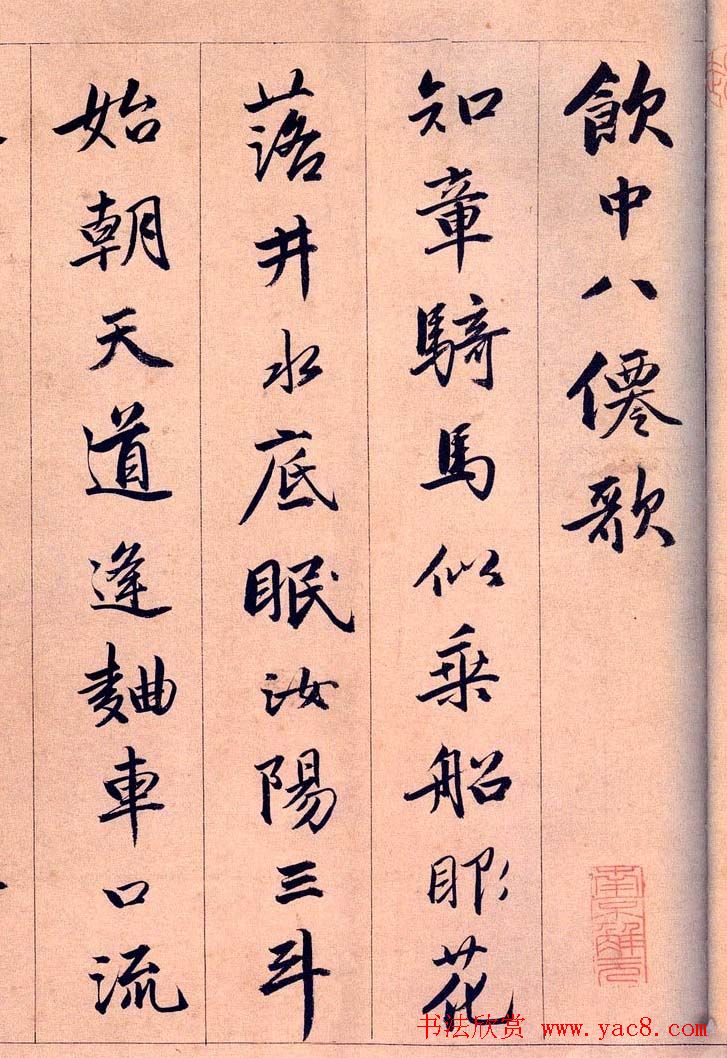 飲中八僊歌
知章騎馬似乘船眼花
落井水底眠汝陽三斗
始朝天道逢麯車口流
南京解元
书法欣赏 www.yac8.com